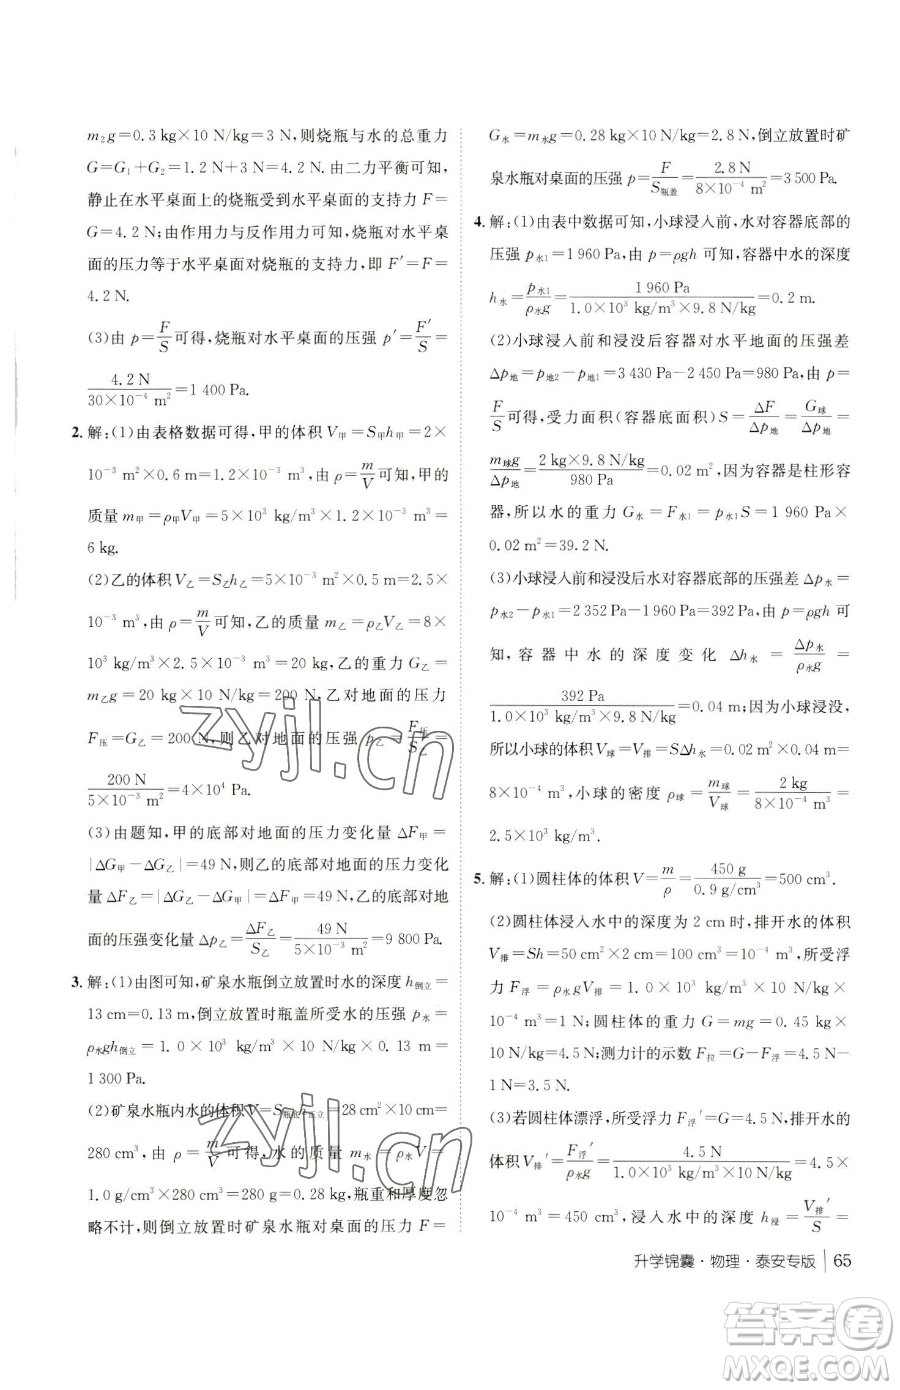 m₂g=0.3 kg×10 N/kg=3 N,则烧瓶与水的总重力
G=G₁+G₂=1.2 N+3 N=4.2 N.由二力平衡可知,
静止在水平桌面上的烧瓶受到水平桌面的支持力 F=
G=4.2 N;由作用力与反作用力可知,烧瓶对水平桌
面的压力等于水平桌面对烧瓶的支持力,即 F′=F=
4.2 N.
(3)由 p=F/S可得,烧瓶对水平桌面的压强 p′=F′/S=
4.2 N/(30×10⁻⁴ m²)=1 400 Pa.
2. 解:(1)由表格数据可得,甲的体积 V甲=S甲h甲=2×
10⁻³ m²×0.6 m=1.2×10⁻³ m³,由 ρ=m/V可知,甲的
质量 m甲=ρ甲V甲=5×10³ kg/m³×1.2×10⁻³ m³=
6 kg.
(2)乙的体积 V乙=S乙h乙=5×10⁻³ m²×0.5 m=2.5×
10⁻³ m³,由 ρ=m/V可知,乙的质量 m乙=ρ乙V乙=8×
10³ kg/m³×2.5×10⁻³ m³=20 kg,乙的重力 G乙=
m乙g=20 kg×10 N/kg=200 N,乙对地面的压力
F压=G乙=200 N,则乙对地面的压强 p乙=F压/S乙=
200 N/(5×10⁻³ m²)=4×10⁴ Pa.
(3)由题知,甲的底部对地面的压力变化量 ΔF甲=
|ΔG甲-ΔG乙|=49 N,则乙的底部对地面的压力变化
量 ΔF乙=|ΔG乙-ΔG甲|=49 N,所以乙的底部对地
面的压强变化量 Δp乙=ΔF乙/S乙=49 N/(5×10⁻³ m²)=9 800 Pa.
3. 解:(1)由图可知,矿泉水瓶倒立放置时水的深度 h倒立=
13 cm=0.13 m,倒立放置时瓶盖所受水的压强 p水=
ρ水gh倒立=1.0×10³ kg/m³×10 N/kg×0.13 m=
1 300 Pa.
(2)矿泉水瓶内水的体积 V=S瓶底h正立=28 cm²×10 cm=
280 cm³,由 ρ=m/V可得,水的质量 m水=ρ水V=
1.0 g/cm³×280 cm³=0.28 kg,瓶重和厚度忽
略不计,则倒立放置时矿泉水瓶对桌面的压力 F=
G水=m水g=0.28 kg×10 N/kg=2.8 N,倒立放置时矿
泉水瓶对桌面的压强 p=F/S瓶盖=2.8 N/(8×10⁻⁴ m²)=3 500 Pa.
4. 解:(1)由表中数据可知,小球浸入前,水对容器底部的
压强 p水1=1 960 Pa,由 p=ρgh 可知,容器中水的深度
h水=p水1/(ρ水g)=1 960 Pa/(1.0×10³ kg/m³×9.8 N/kg)=0.2 m.
(2)小球浸入前和浸没后容器对水平地面的压强差
Δp地=p地2-p地1=3 430 Pa-2 450 Pa=980 Pa,由 p=
F/S可得,受力面积(容器底面积)S=ΔF/Δp地=G球/Δp地=
m球g/Δp地=2 kg×9.8 N/kg/980 Pa=0.02 m²,因为容器是柱形容
器,所以水的重力 G水=F水1=p水1S=1 960 Pa×
0.02 m²=39.2 N.
(3)小球浸入前和浸没后水对容器底部的压强差 Δp水=
p水2-p水1=2 352 Pa-1 960 Pa=392 Pa,由 p=ρgh 可
知,容器中水的深度变化 Δh水=Δp水/(ρ水g)=
392 Pa/(1.0×10³ kg/m³×9.8 N/kg)=0.04 m;因为小球浸没,
所以小球的体积 V球=V排=SΔh水=0.02 m²×0.04 m=
8×10⁻⁴ m³,小球的密度 ρ球=m球/V球=2 kg/(8×10⁻⁴ m³)=
2.5×10³ kg/m³.
5. 解:(1)圆柱体的体积 V=m/ρ=450 g/(0.9 g/cm³)=500 cm³.
(2)圆柱体浸入水中的深度为 2 cm 时,排开水的体积
V排=Sh=50 cm²×2 cm=100 cm³=10⁻⁴ m³,所受浮
力 F浮=ρ水gV排=1.0×10³ kg/m³×10 N/kg×10⁻⁴
m³=1 N;圆柱体的重力 G=mg=0.45 kg×
10 N/kg=4.5 N;测力计的示数 F拉=G-F浮=4.5 N-
1 N=3.5 N.
(3)若圆柱体漂浮,所受浮力 F浮′=G=4.5 N,排开水的
体积 V排′=F浮′/(ρ水g)=4.5 N/(1.0×10³ kg/m³×10 N/kg)=4.5×
10⁻⁴ m³=450 cm³,浸入水中的深度 h浸=V排′/S=
升学锦囊·物理·泰安专版 | 65
zyjl.cn
zyjl.cn
答案圈
MXQE.COM